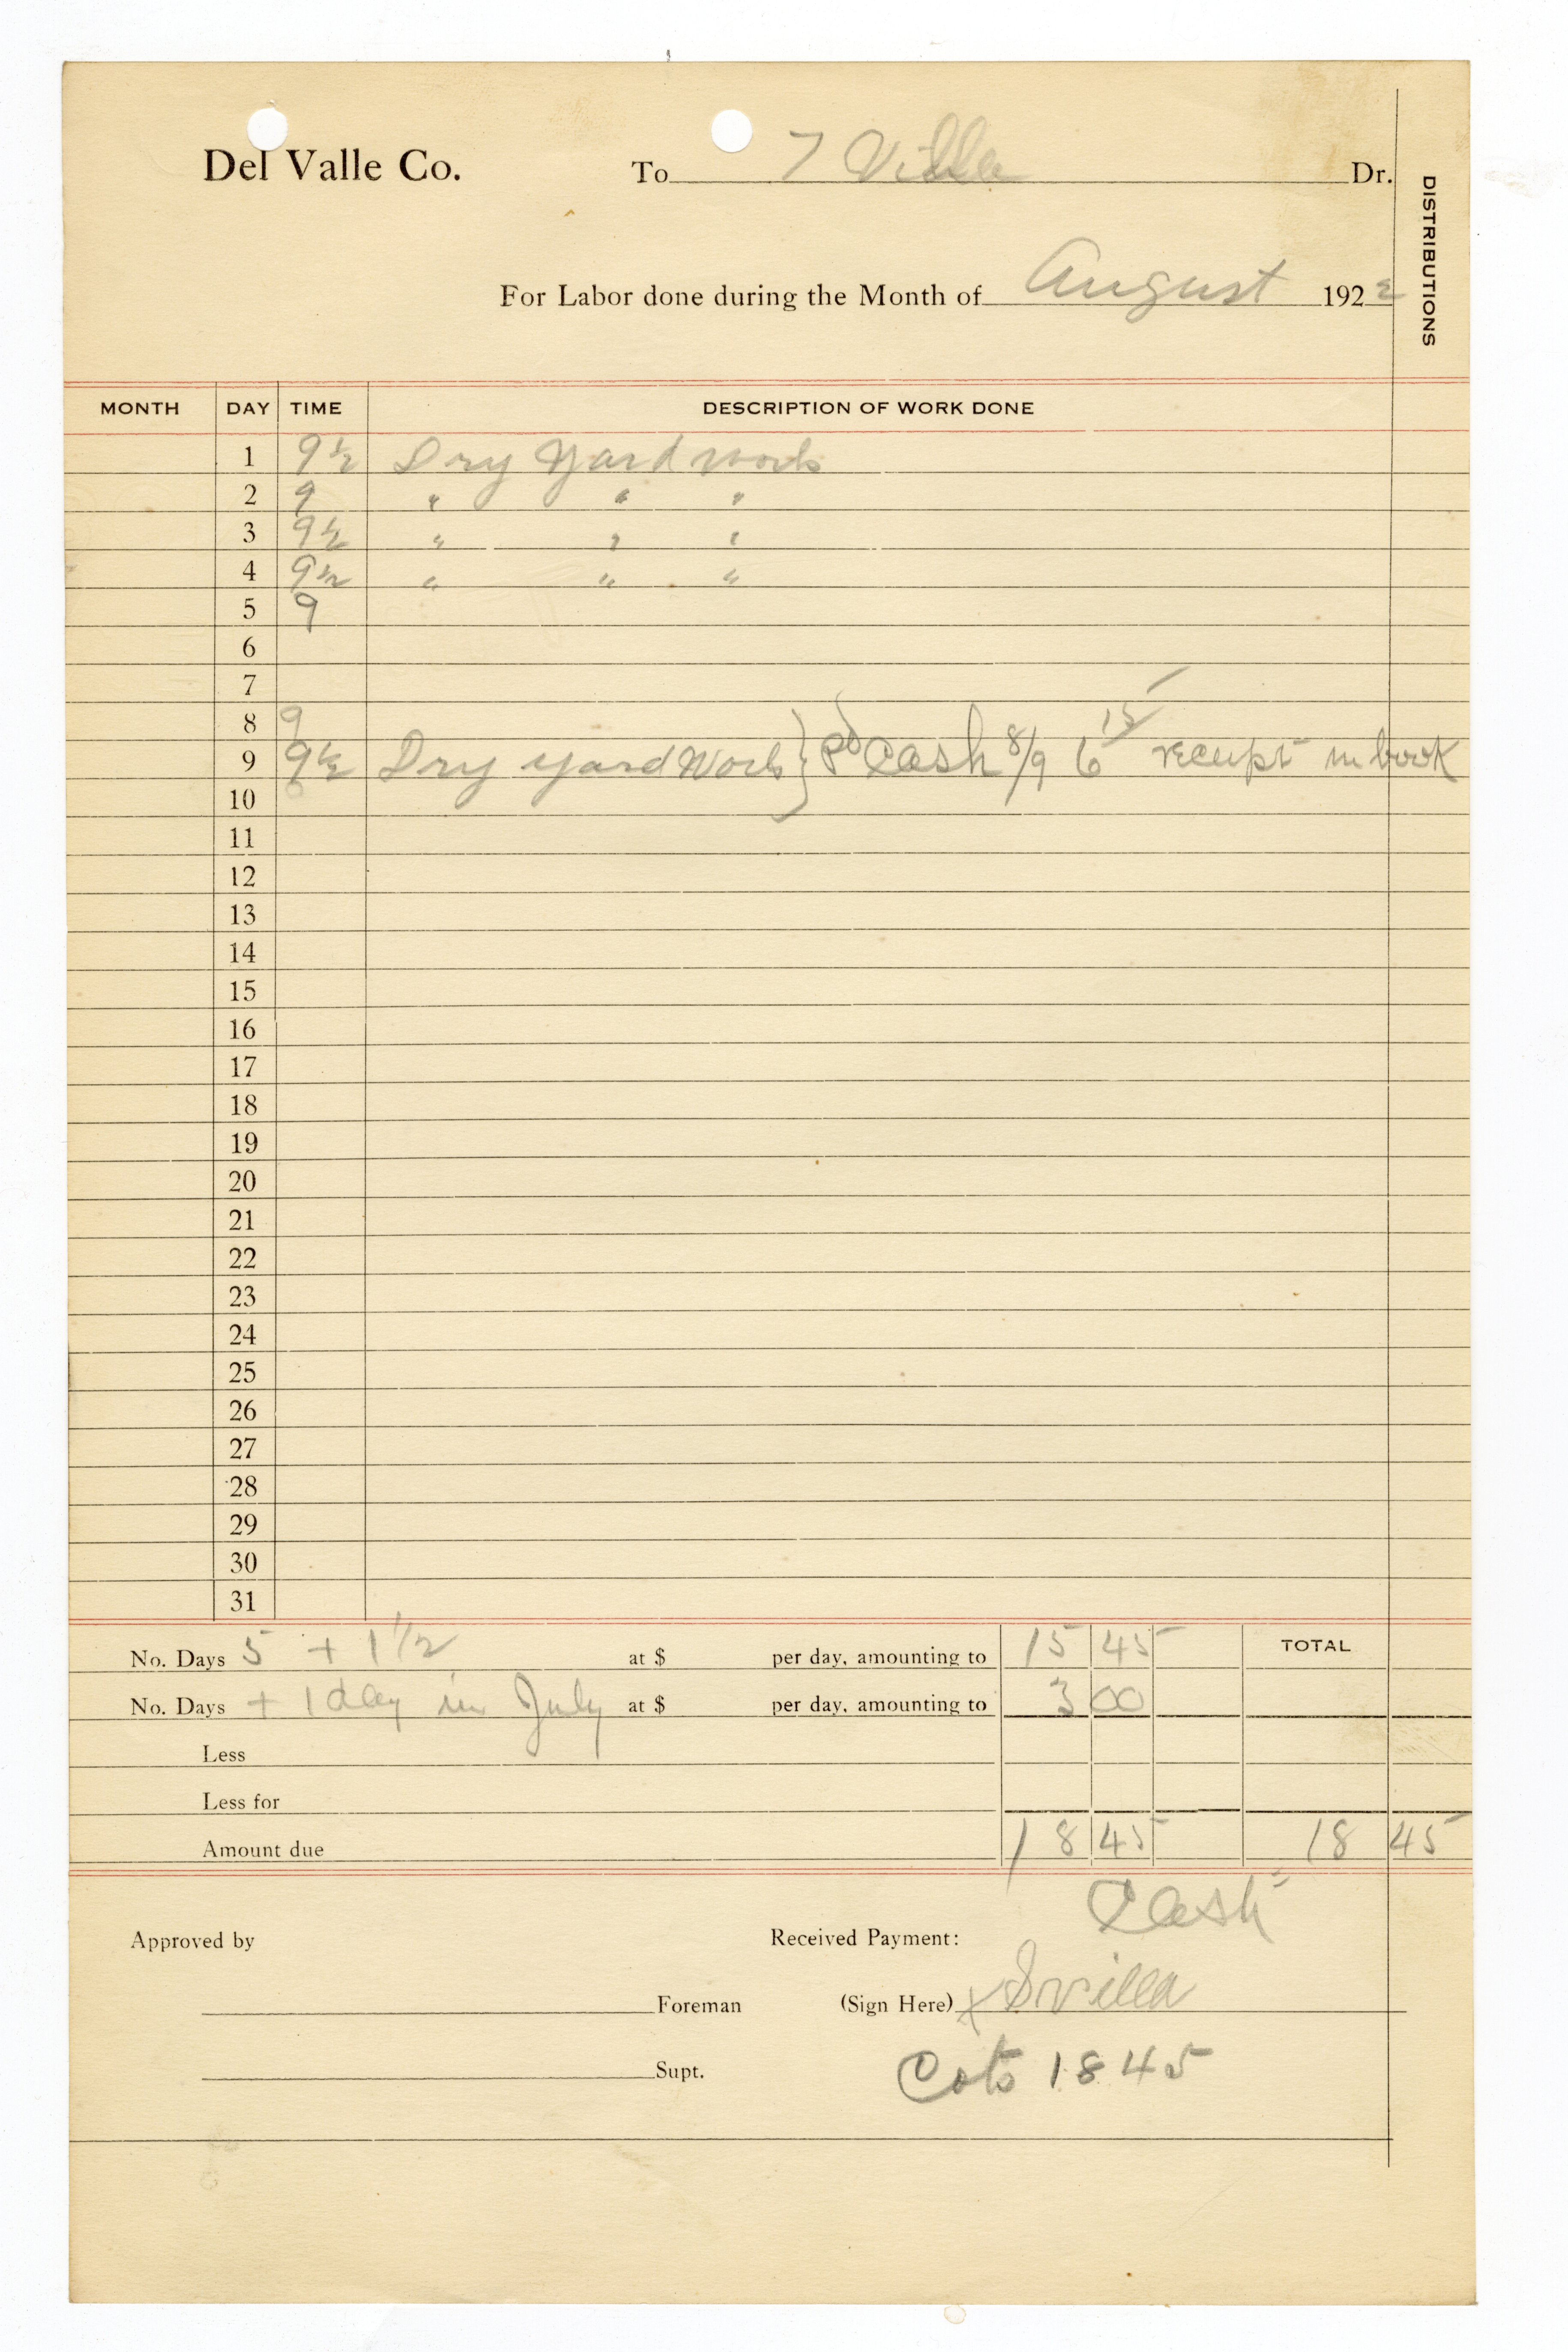 Del Valle Co. To 7 Villa Dr.
DISTRIBUTIONS
For Labor done during the Month of August 1922
MONTH DAY TIME DESCRIPTION OF WORK DONE
1 9½ Dry Yard work
2 9 " " "
3 9½ " " "
4 9½ " " "
5 9
6
7
8 9
9 9½ Dry yard Work } Pd Cash 8/9 6 15 receipt in book
10
11
12
13
14
15
16
17
18
19
20
21
22
23
24
25
26
27
28
29
30
31
No. Days 5 + 1 1/2 at $ per day, amounting to 15 45 TOTAL
No. Days + 1 day in July at $ per day, amounting to 3 00
Less
Less for
Amount due 18 45 18 45
Cash
Approved by Received Payment:
Foreman (Sign Here) x Svilla
Supt. 1845